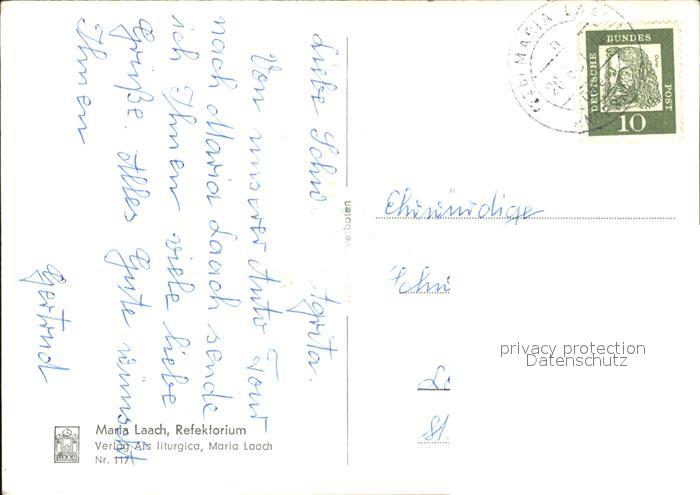 Liebe Schw. Agrita.
Von unserer Auto Tour
nach Maria Laach sende
ich Ihnen viele liebe
Grüße. Alles Gute wünscht
Ihnen
Gertrud
verboten
MARIA LAACH
DEUTSCHE
BUNDES
POST
10
Ehrwürdige
Schw
St.
privacy protection
Datenschutz
Maria Laach, Refektorium
Verlag Ars liturgica, Maria Laach
Nr. 117